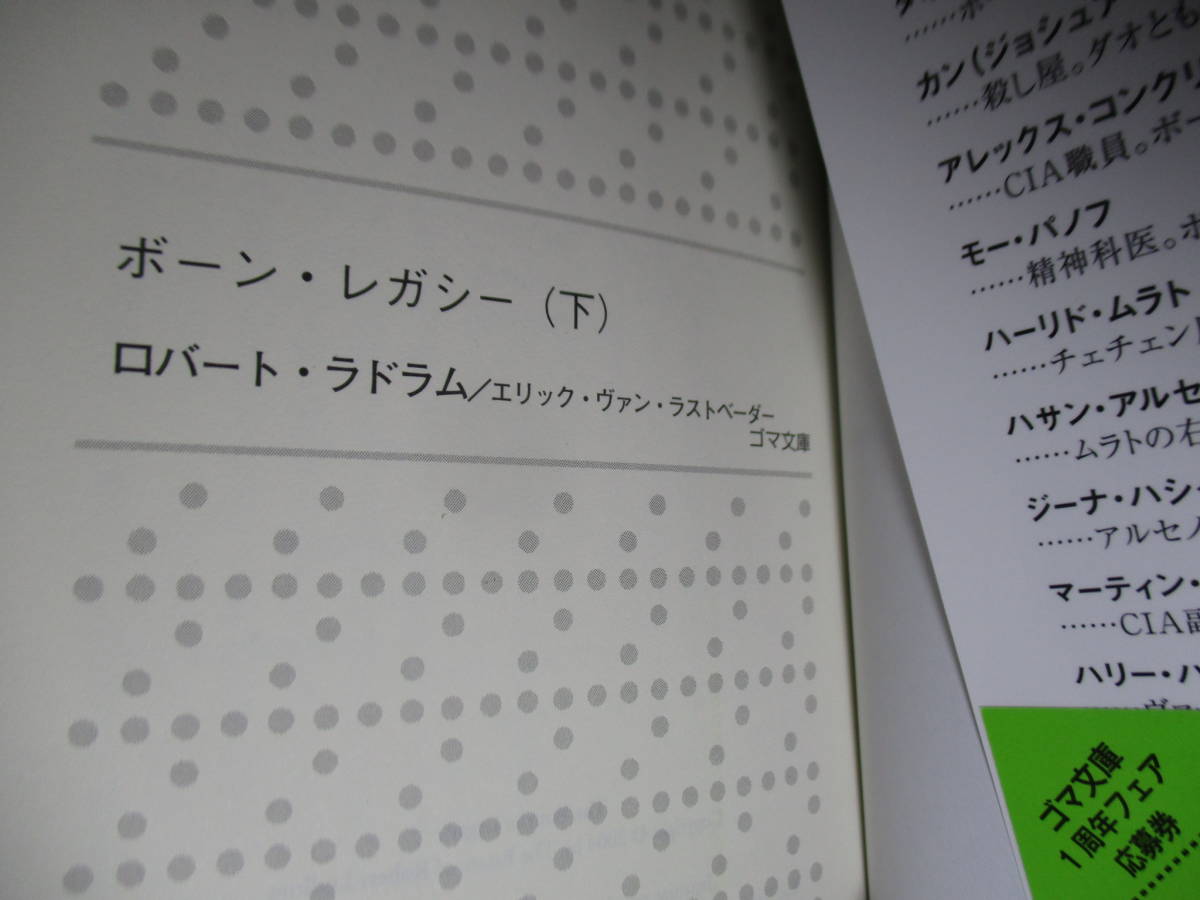 ボーン・レガシー（下）
ロバート・ラドラム／エリック・ヴァン・ラストベーダー
ゴマ文庫
カン（ジョシュア
……殺し屋。ダオとも
アレックス・コンクリ
……CIA職員。ボー
モー・パノフ
……精神科医。ボ
ハーリド・ムラト
……チェチェン
ハサン・アルセ
……ムラトの右
ジーナ・ハシ
……アルセノ
マーティン・
……CIA副
ハリー・ハ
ゴマ文庫
1周年フェア
応募券